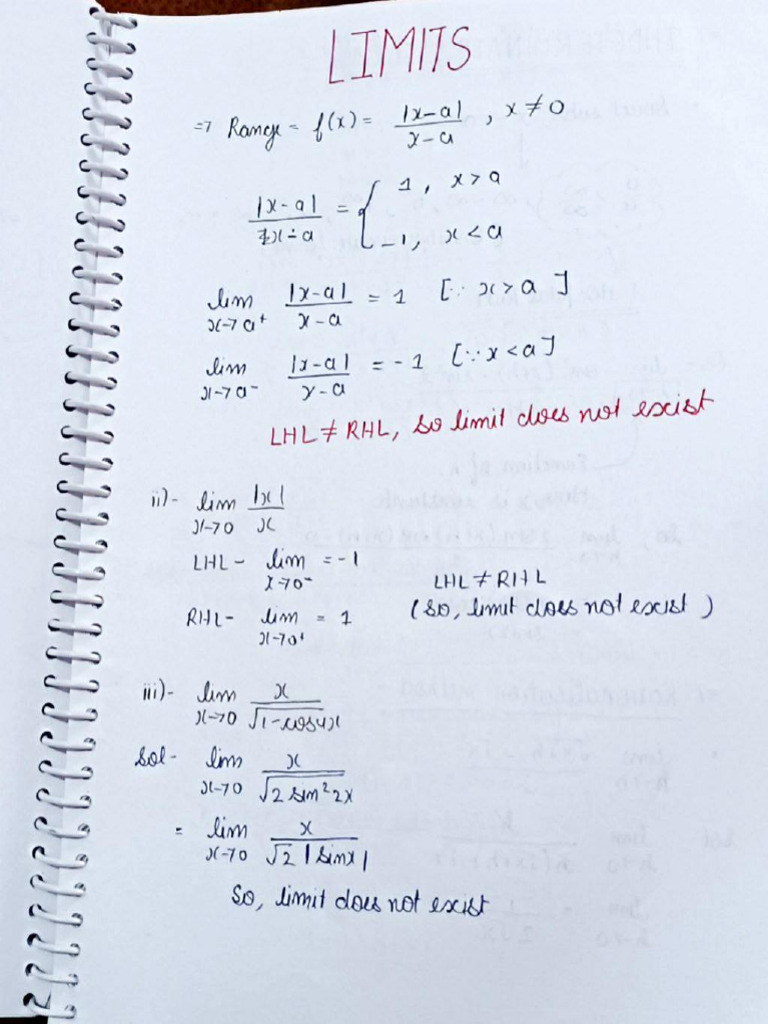 LIMITS
⇒ Range = f(x) = |x-a| / x-a , x ≠ 0
|x-a| / x-a = { 1, x > a
-1, x < a
lim x→a⁺ |x-a| / x-a = 1 [∵ x > a]
lim x→a⁻ |x-a| / x-a = -1 [∵ x < a]
LHL ≠ RHL, so limit does not exist
ii)- lim x→0 |x| / x
LHL - lim x→0⁻ = -1
LHL ≠ RHL
RHL - lim x→0⁺ = 1 (so, limit does not exist)
iii)- lim x→0 x / √1-cos4x
Sol - lim x→0 x / √2 sin²2x
= lim x→0 x / √2 |sinx|
So, limit does not exist